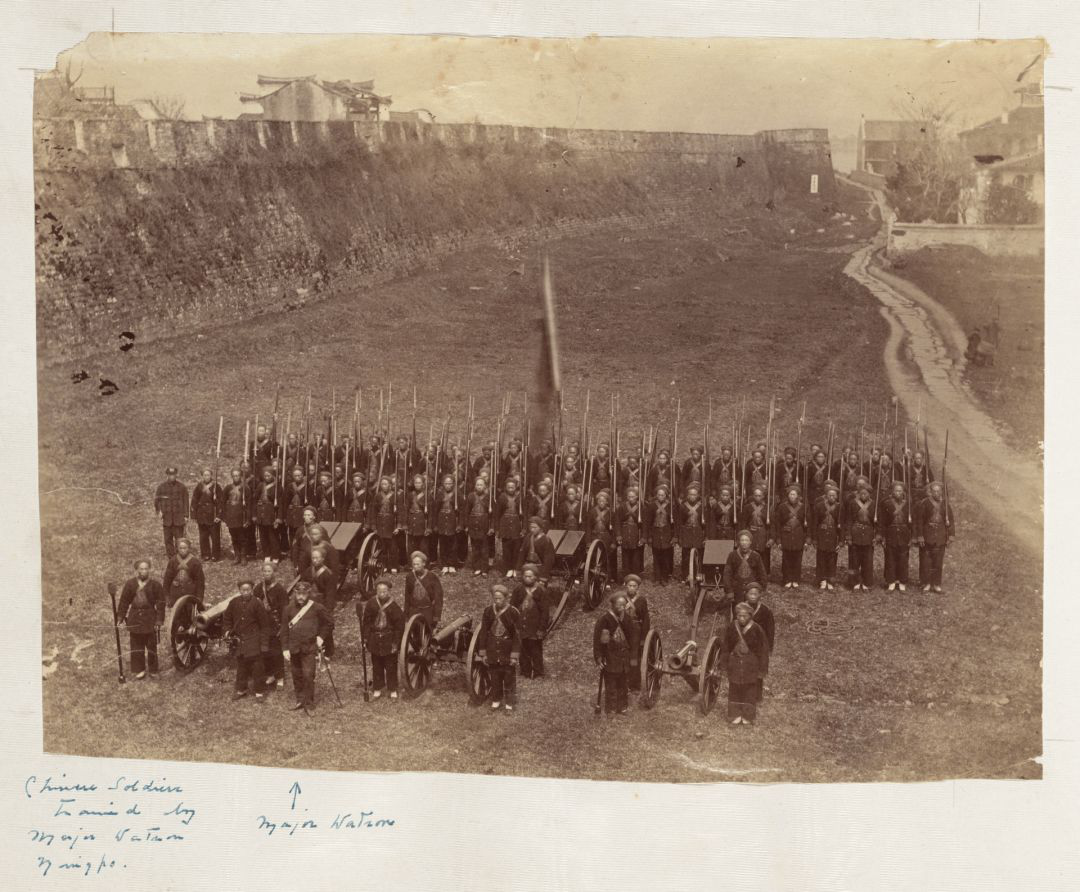 Chinese Soldiers
trained by
Major Watson
Ningpo.
↑
Major Watson